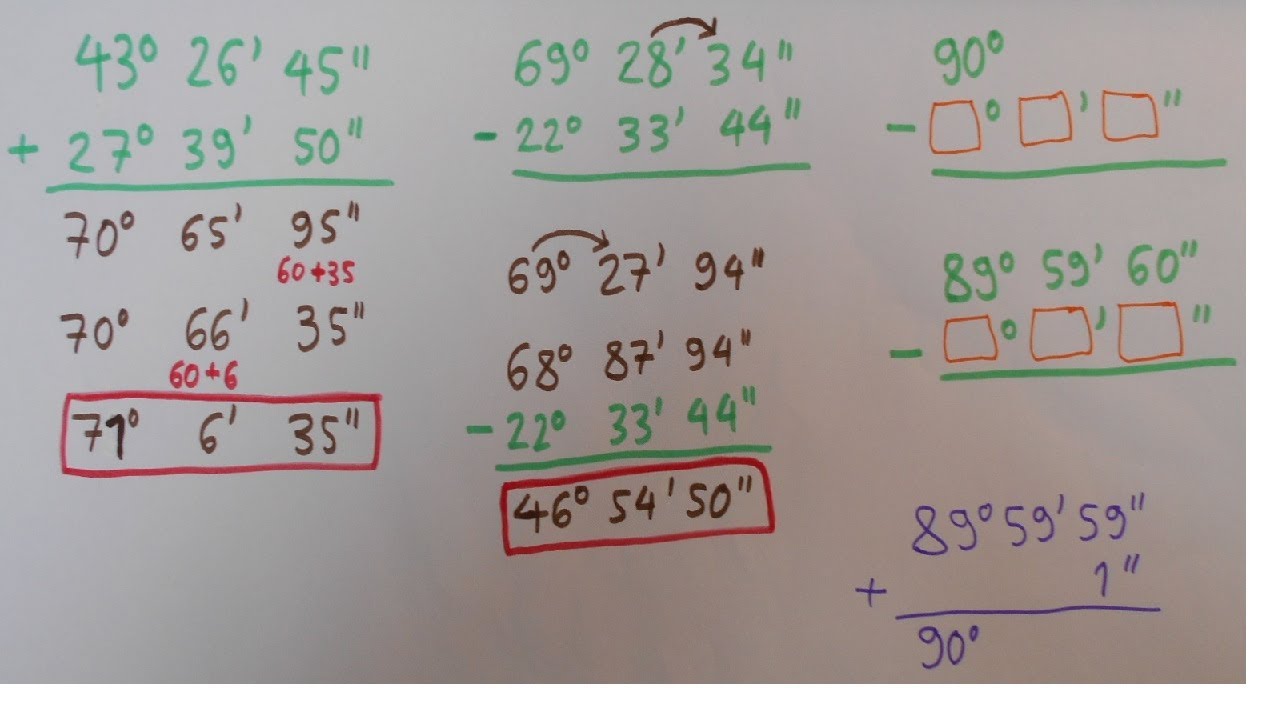 43° 26' 45"
+ 27° 39' 50"
70° 65' 95"
60+35
70° 66' 35"
60+6
71° 6' 35"
69° 28' 34"
- 22° 33' 44"
69° 27' 94"
68° 87' 94"
- 22° 33' 44"
46° 54' 50"
90°
- □° □' □"
89° 59' 60"
- □° □' □"
89° 59' 59"
+ 1"
90°